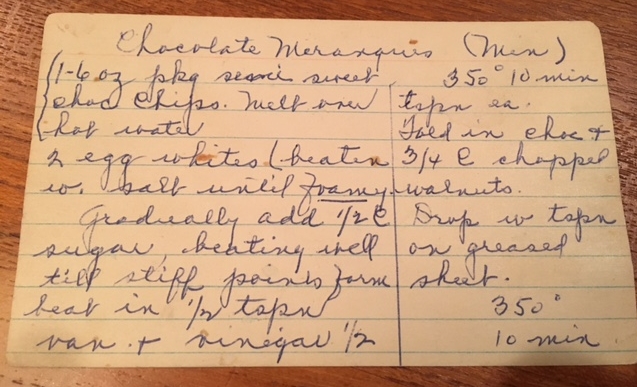 Chocolate Meranques (Min)
1-6 oz pkg semi sweet
choc chips. Melt over
hot water
2 egg whites (beaten
w. salt until foamy.
Gradually add 1/2 C
sugar, beating well
till stiff points form
beat in 1/2 tspn
van. + vinegar 1/2
350° 10 min
tspn ea.
Fold in choc +
3/4 C chopped
walnuts.
Drop w tspn
on greased
sheet.
350°
10 min